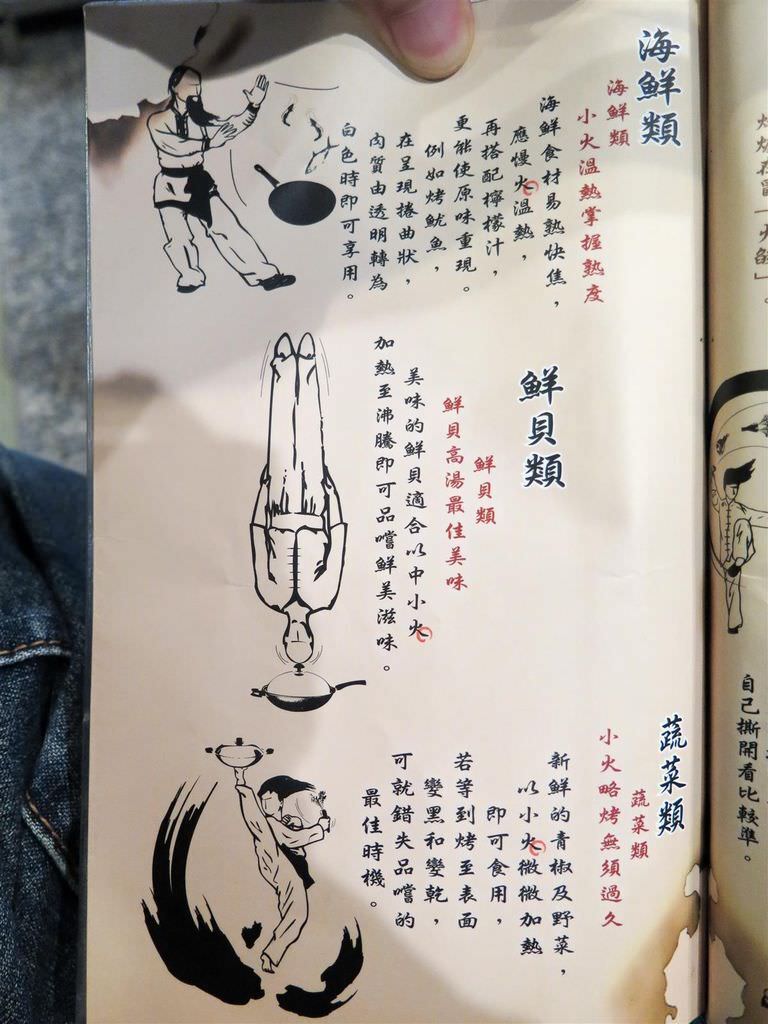 海鮮類
海鮮類
小火溫熱掌握熟度
海鮮食材易熟快焦，
應慢火溫熱，
再搭配檸檬汁，
更能使原味重現。
例如烤魷魚，
在呈現捲曲狀，
肉質由透明轉為
白色時即可享用。
鮮貝類
鮮貝類
鮮貝高湯最佳美味
美味的鮮貝適合以中小火
加熱至沸騰即可品嚐鮮美滋味。
蔬菜類
蔬菜類
小火略烤無須過久
新鮮的青椒及野菜，
以小火微微加熱
即可食用，
若等到烤至表面
變黑和變乾，
可就錯失品嚐的
最佳時機。
自己撕開看比較準。